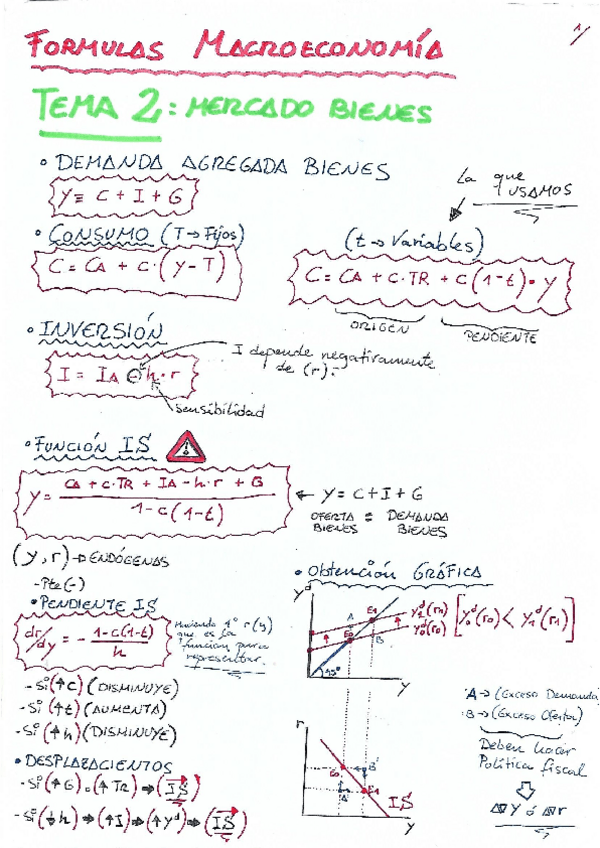 1/
FORMULAS MACROECONOMÍA
TEMA 2: MERCADO BIENES
• DEMANDA AGREGADA BIENES
Y ≡ C + I + G
La que
USAMOS
• CONSUMO (T → Fijos)
(t → Variables)
C = CA + c·(Y - T)
C = CA + c·TR + c(1-t)·Y
ORIGEN
PENDIENTE
• INVERSIÓN
I depende negativamente
de (r).-
I = IA - h·r
sensibilidad
• FUNCIÓN IS
Y = CA + c·TR + IA - h·r + G / 1 - c(1-t)
← Y = C + I + G
OFERTA = DEMANDA
BIENES BIENES
(Y, r) → ENDÓGENAS
- Pte(-)
• PENDIENTE IS
dr/dy = - 1-c(1-t) / h
que es la
función para
representar.
- Si (↑c) (DISMINUYE)
- Si (↑t) (AUMENTA)
- Si (↑h) (DISMINUYE)
• DESPLAZACIENTOS
- Si (↑G) o (↑TR) ⇒ (IS)
- Si (↓h) ⇒ (↑I) ⇒ (↑Yd) ⇒ (IS)
• Obtención GRÁFICA
Yd
A
E1
Y1d(r1)
E0
B
Y0d(r0)
[Y0d(r0) < Y1d(r1)]
45°
Y
r
E0
B'
A'
E1
IS
Y
• A → (Exceso Demanda)
• B → (Exceso Oferta)
Deben hacer
Política fiscal
ΔY ó Δr